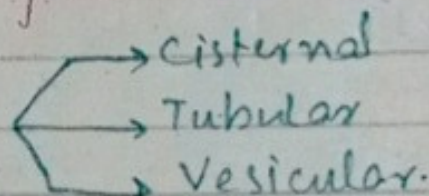 Cisternal
Tubular
Vesicular.